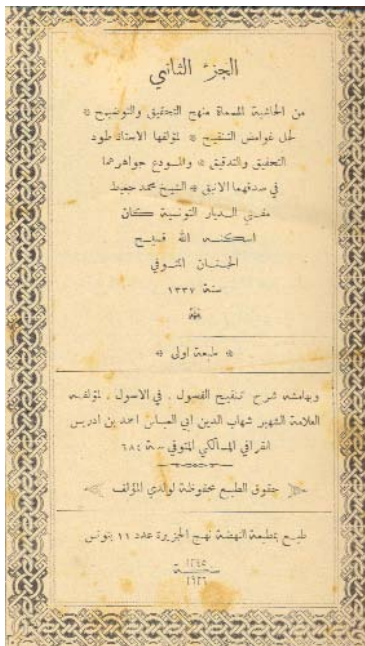 الجزء الثاني
من الحاشية المسماة منهج التحقيق والتوضيح *
لحل غوامض التنقيح * لمؤلفها الاستاذ طود
التحقيق والتدقيق * والمودع جواهرهما
في صدفهما الانيق * الشيخ محمد جعيط
مفتي الديار التونسية كان
اسكنه الله فسيح
الجنان المتوفي
سنة ١٣٣٧
* طبعة اولى *
وبهامشه شرح تنقيح الفصول . في الاصول . لمؤلفه
العلامة الشهير شهاب الدين ابي العباس احمد بن ادريس
القرافي المالكي المتوفي سنة ٦٨٤
حقوق الطبع محفوظة لولدي المؤلف
طبع بمطبعة النهضة نهج الجزيرة عدد ١١ بتونس
١٣٤٥
سنة
١٩٢٦